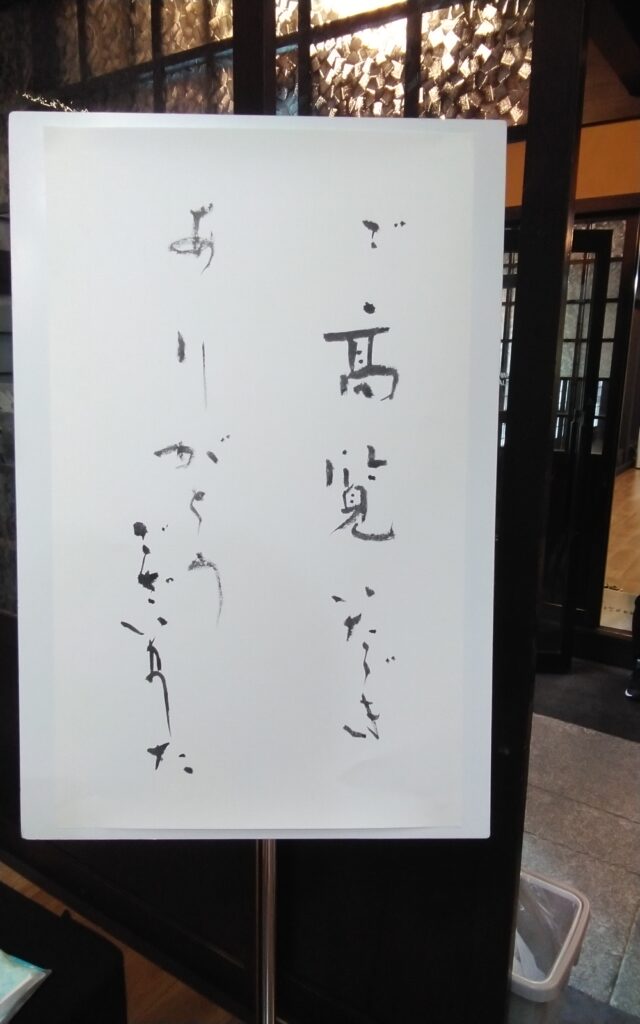 ご高覧いただき
ありがとう
ございました